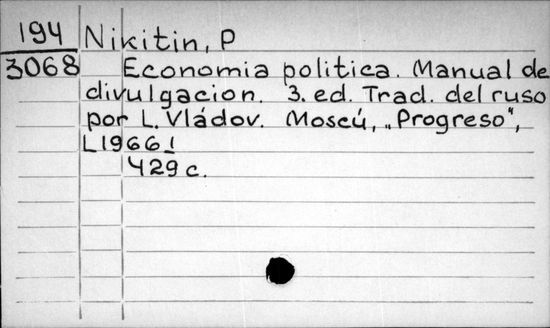 194 Nikitin, P
3068 Economia politica. Manual de
divulgacion. 3. ed. Trad. del ruso
por L. Vládov. Moscú, „Progreso",
[1966]
429 c.